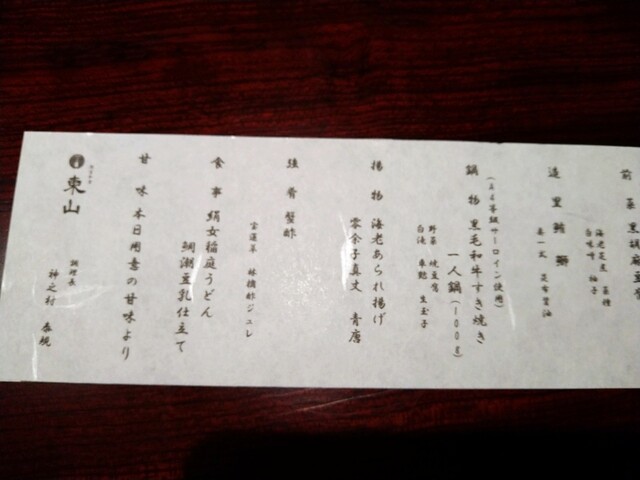 前菜 黒胡麻豆腐
海老芝煮 菜種
白味噌 柚子
造里
昆布醤油
鍋物 黒毛和牛すき焼き
(A4等級サーロイン使用)
一人鍋(100g)
野菜 焼豆腐
白滝 車麩 生玉子
揚物 海老あられ揚げ
雲余子真丈 青唐
強肴 蟹酢
宝蓮草 林檎酢ジュレ
食事 絹女稲庭うどん
鯛潮豆乳仕立て
甘味 本日用意の甘味より
東山
調理長
神之村